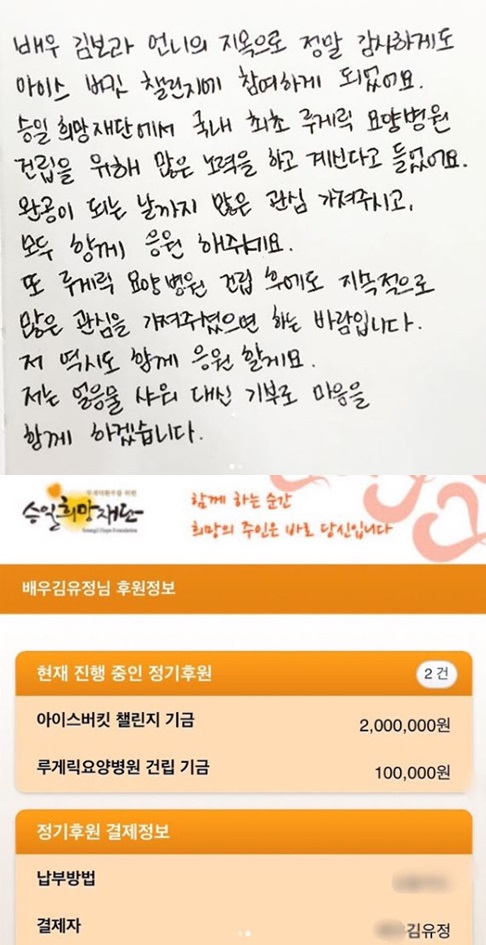 배우 김보라 언니의 지목으로 정말 감사하게도
아이스 버킷 챌린지에 참여하게 되었어요.
승일 희망재단에서 국내 최초 루게릭 요양병원
건립을 위해 많은 노력을 하고 계신다고 들었어요.
완공이 되는 날까지 많은 관심 가져주시고,
모두 함께 응원 해주세요.
또 루게릭 요양병원 건립 후에도 지속적으로
많은 관심을 가져주셨으면 하는 바람입니다.
저 역시도 함께 응원 할게요.
저는 얼음물 샤워 대신 기부로 마음을
함께 하겠습니다.
승일희망재단
함께 하는 순간
희망의 주인은 바로 당신입니다
배우김유정님 후원정보
현재 진행 중인 정기후원 2 건
아이스버킷 챌린지 기금 2,000,000원
루게릭요양병원 건립 기금 100,000원
정기후원 결제정보
납부방법
결제자 김유정